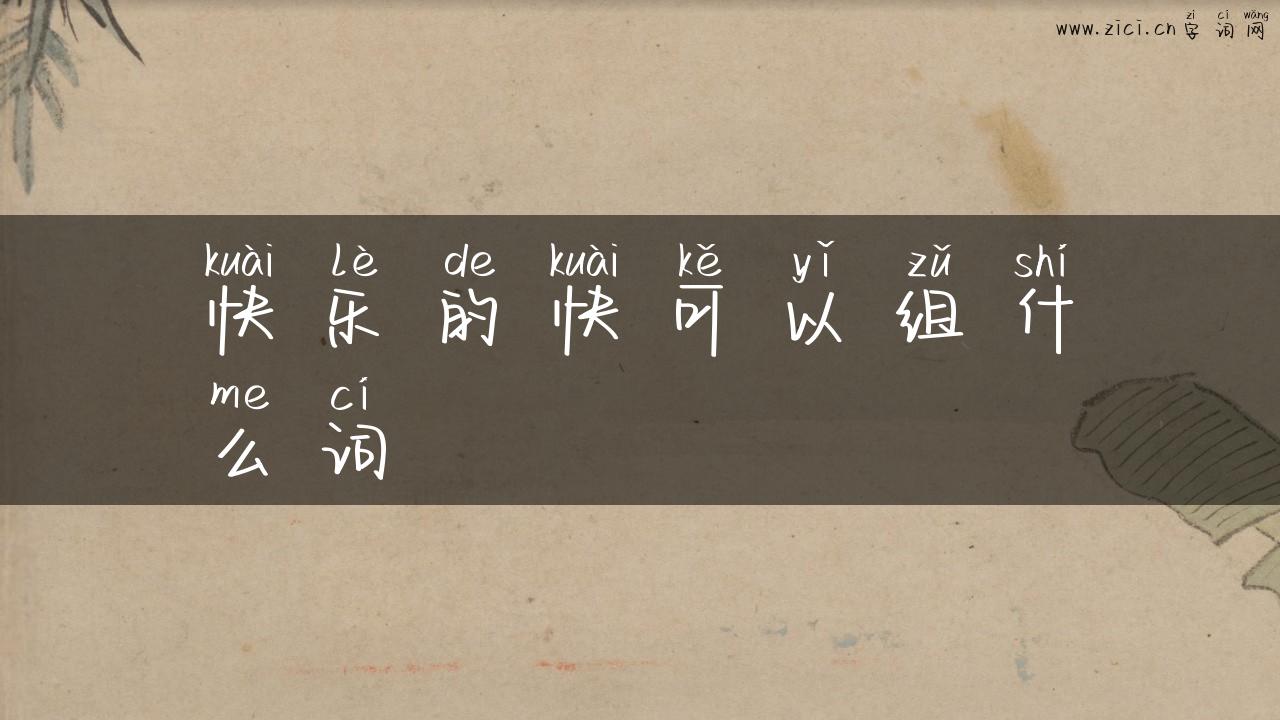 zì cí wǎng
www.zici.cn 字词网
kuài lè de kuài kě yǐ zǔ shí
快乐的快可以组什
me cí
么词